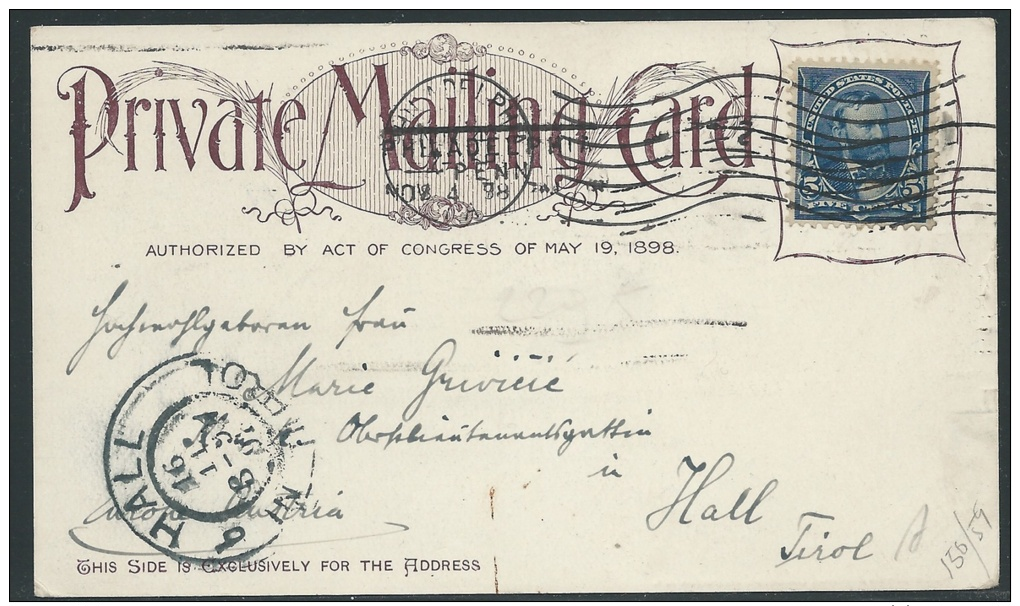 Private Mailing Card
UNITED STATES POSTAGE
5 5
FIVE CENTS
PHILADELPHIA
PENN
NOV 4 98
AUTHORIZED BY ACT OF CONGRESS OF MAY 19, 1898.
Hochwohlgeboren Frau
Marie
Oberstlieutenantsgattin
in
Hall
Tirol
Europe Austria
HALL
TIROL
16
11
98
THIS SIDE IS EXCLUSIVELY FOR THE ADDRESS
156/59